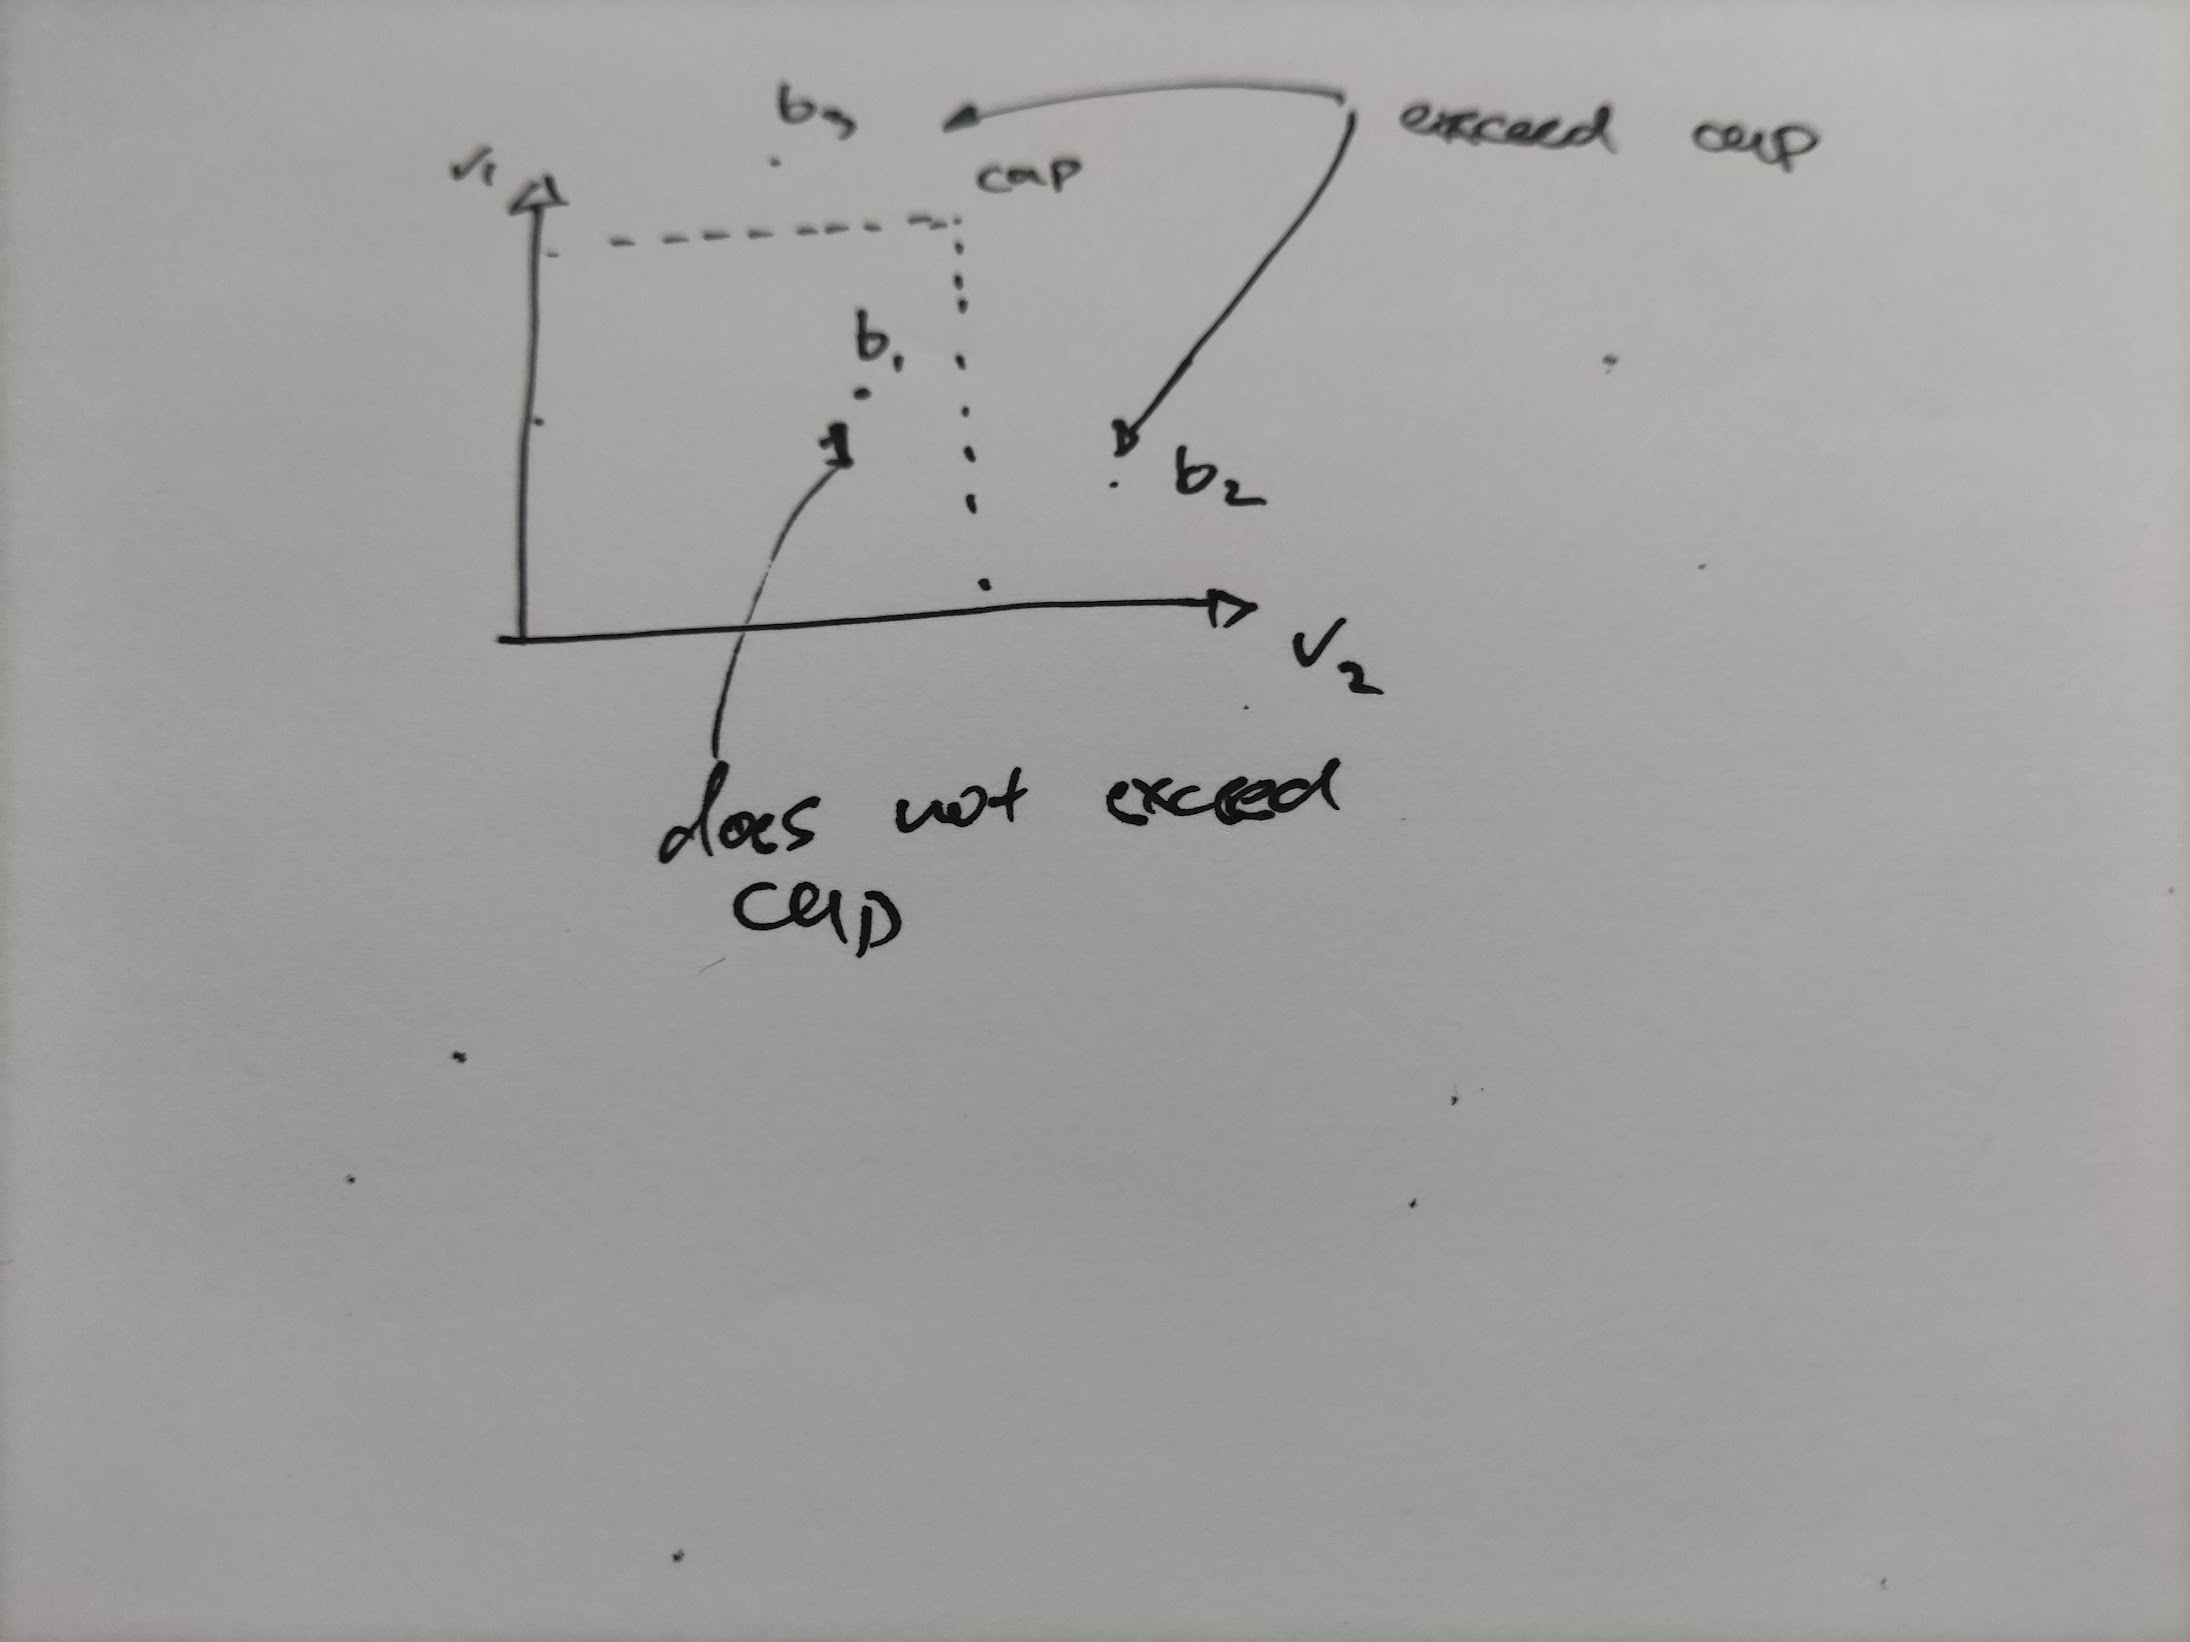 b3
exceed cap
v1
cap
b1
b2
v2
does not exceed
cap